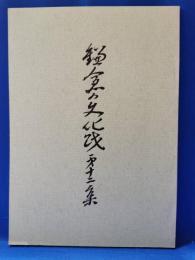 鎌倉の文化財
第十二集